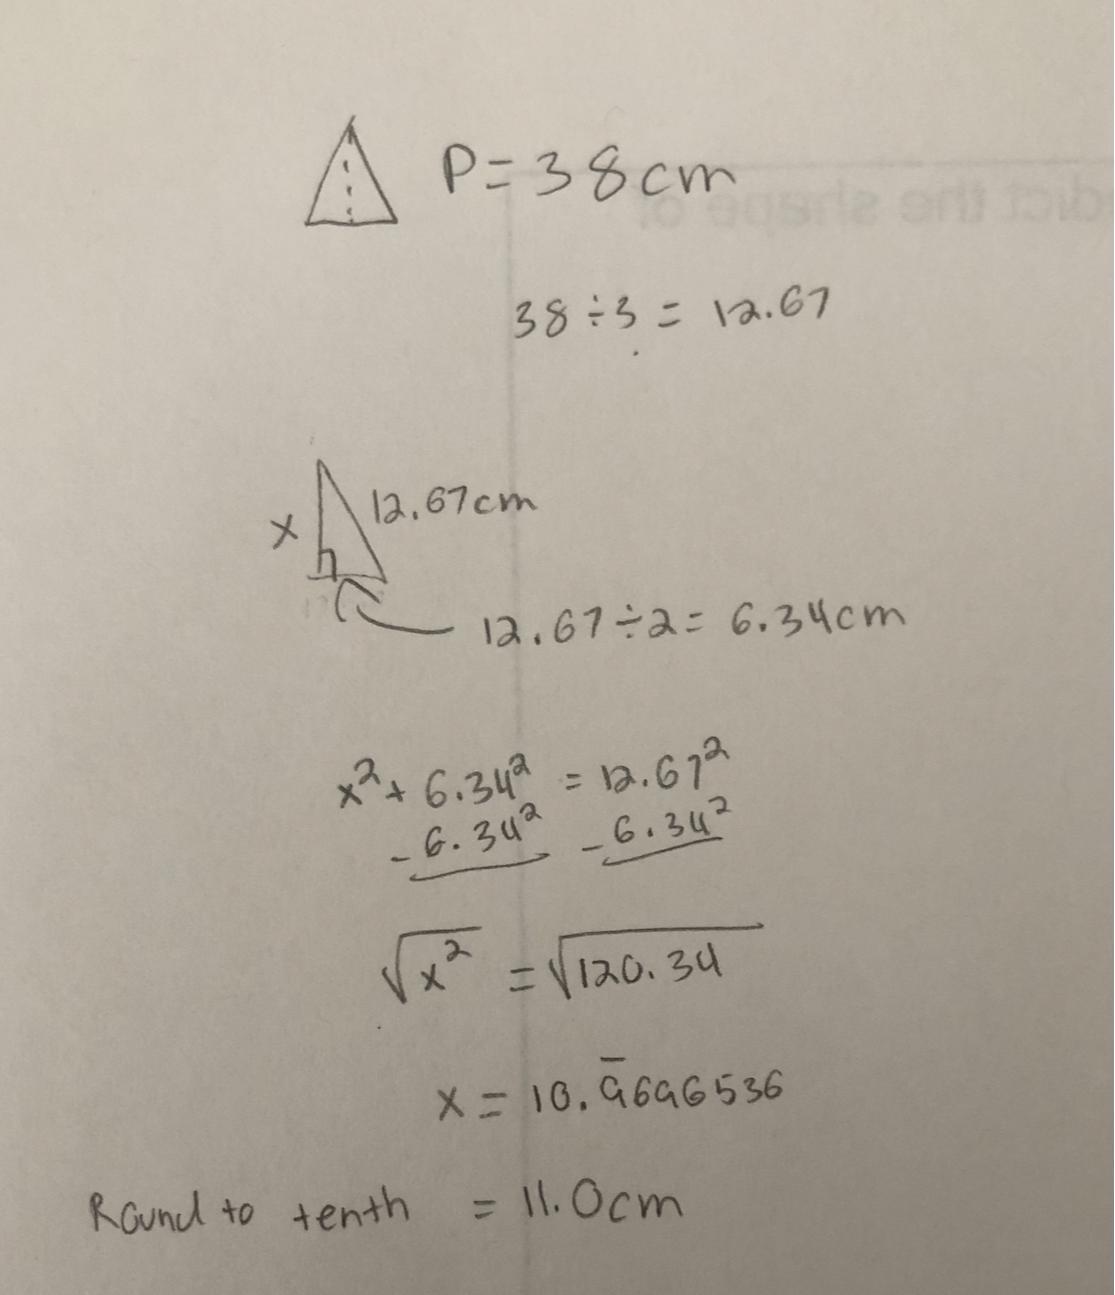 P=38cm
dict the shape of
38÷3 = 12.67
x 12.67cm
12.67÷2= 6.34cm
x² + 6.34² = 12.67²
-6.34² -6.34²
√x² = √120.34
x = 10.9̅696536
Round to tenth = 11.0cm